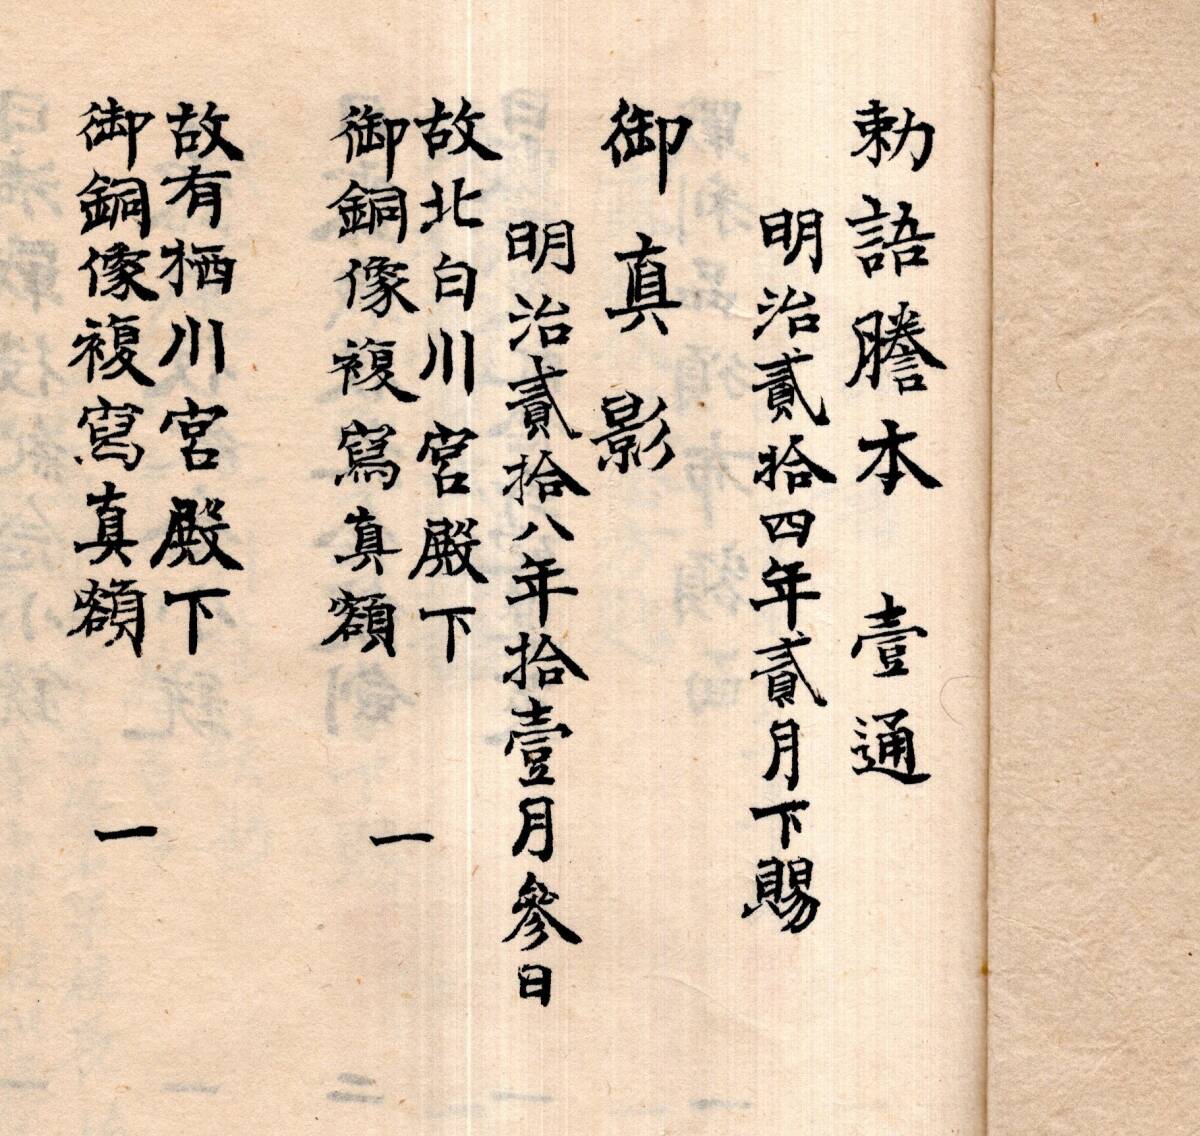 勅語謄本 壹通
明治貳拾四年貳月下賜
御真影
明治貳拾八年拾壹月參日
故北白川宮殿下
御銅像複寫真額 一
故有栖川宮殿下
御銅像複寫真額 一